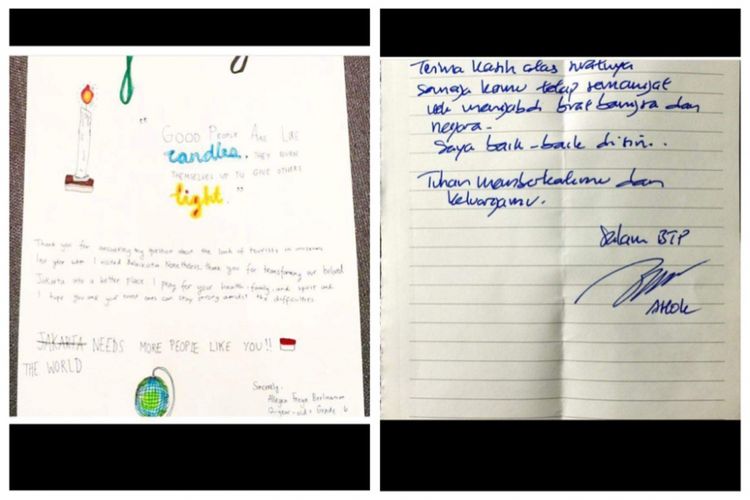 "
GOOD PEOPLE ARE LIKE
candles, THEY BURN
THEMSELVES UP TO GIVE OTHERS
light."
Thank you for answering my question about the lack of tourists in museums
last year when I visited Balaikota. Nonetheless, thank you for transforming our beloved
Jakarta into a better place. I pray for your health, family, and spirit and
I hope you and your loved ones can stay strong amidst the difficulties
JAKARTA NEEDS MORE PEOPLE LIKE YOU!!
THE WORLD
Sincerely,
12-year-old, Grade 6
Terima kasih atas suratnya
semoga kamu tetap semangat
utk mengabdi buat bangsa dan
negara.
Saya baik-baik disini..
Tuhan memberkatimu dan
keluargamu.
Salam BTP
AHOK